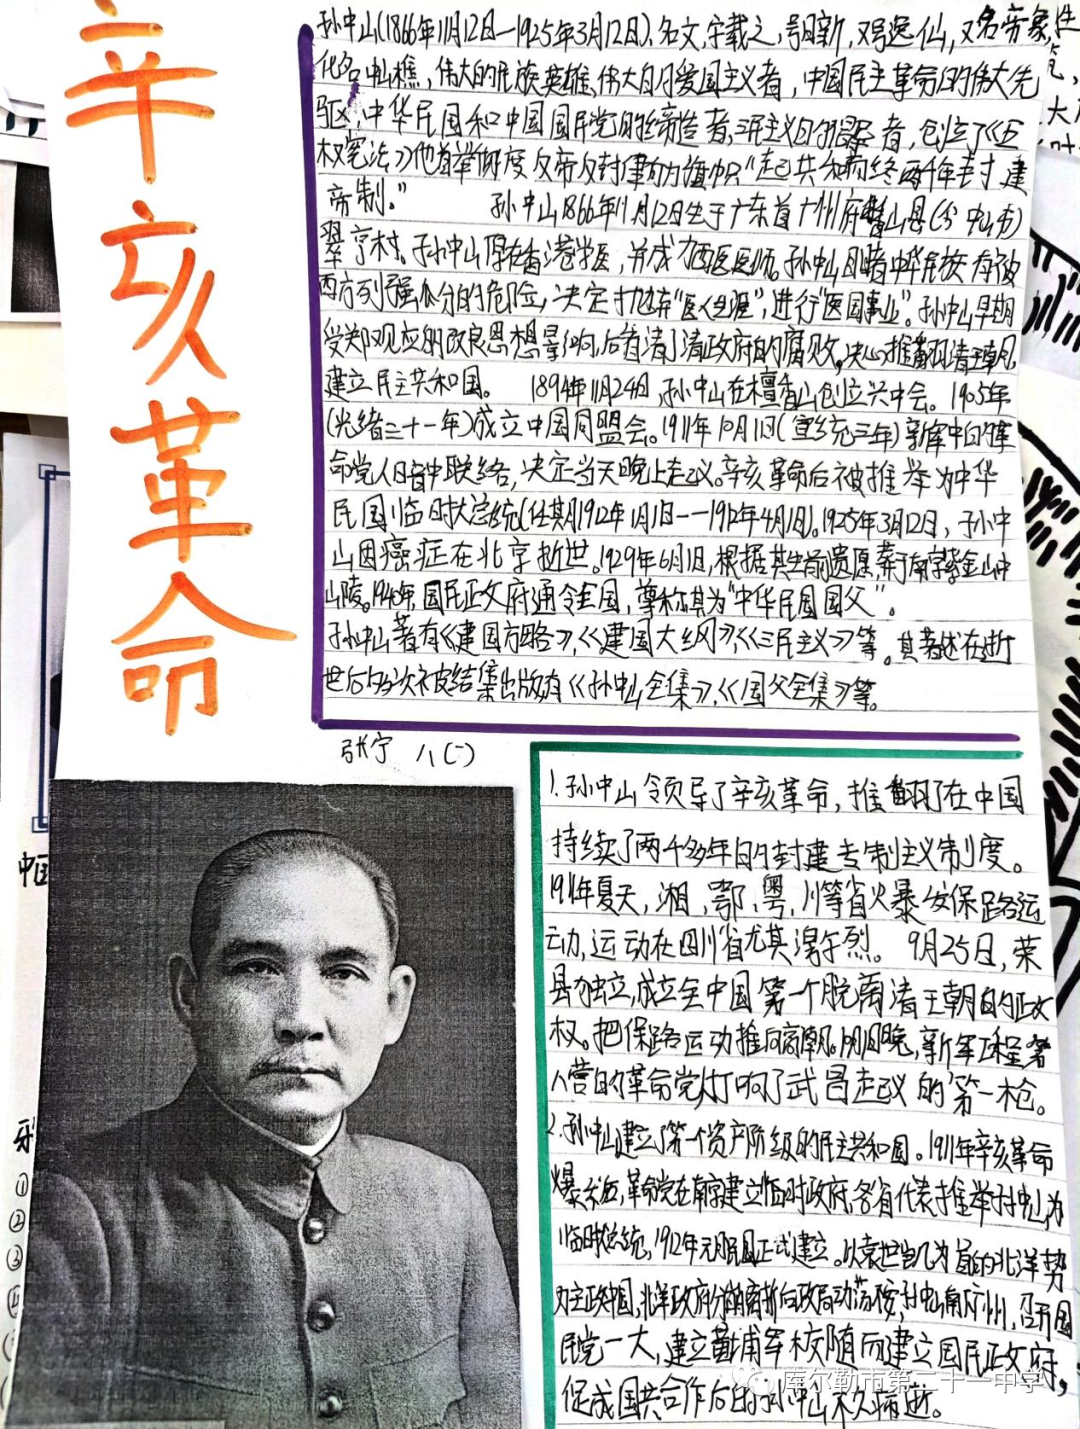 辛亥革命
孙中山(1866年11月12日—1925年3月12日)、名文,字载之,号日新,又号逸仙,又名帝象,
化名中山樵,伟大的民族英雄、伟大的爱国主义者,中国民主革命的伟大先
驱,中华民国和中国国民党的缔造者,三民主义的倡导者,创立了《五
权宪法》他首举彻底反帝反封建的旗帜,“起共和而终两千年封建
帝制。” 孙中山1866年11月12日生于广东省广州府香山县(今中山市)
翠亨村。孙中山原在香港学医,并成为西医医师。孙中山目睹中华民族有被
西方列强瓜分的危险,决定抛弃“医人生涯”,进行“医国事业”。孙中山早期
受郑观应的改良思想影响,后看清了清政府的腐败,决心推翻清王朝,
建立民主共和国。 1894年11月24日,孙中山在檀香山创立兴中会。1905年
(光绪三十一年)成立中国同盟会。1911年10月1日(宣统三年)新军中的革
命党人暗中联络,决定当天晚上起义。辛亥革命后被推举为中华
民国临时大总统(任期1912年1月1日——1912年4月1日)。1925年3月12日,孙中
山因癌症在北京逝世。1929年6月1日,根据其生前遗愿,葬于南京紫金山中
山陵。1940年,国民政府通令全国,尊称其为“中华民国国父”。
孙中山著有《建国方略》、《建国大纲》、《三民主义》等。其著述在逝
世后多次被结集出版,有《孙中山全集》、《国父全集》等。
张宁 八(一)
1.孙中山领导了辛亥革命,推翻了在中国
持续了两千多年的封建专制主义制度。
1911年夏天,湘、鄂、粤、川等省火暴发保路运
动,运动在四川省尤其激烈。 9月25日,荣
县独立,成立全中国第一个脱离清王朝的政
权。把保路运动推向高潮。10月10日晚,新军工程营
人营的革命党打响了武昌起义的第一枪。
2.孙中山建立了第一个资产阶级的民主共和国。1911年辛亥革命
爆发后,革命党在南京建立临时政府,各省代表推举孙中山为
临时大总统,1912年元旦民国正式建立。以袁世凯为首的北洋势
力主政中国,北洋政府分崩离析后政局动荡,孙中山南下广州,召开国
民党一大,建立黄埔军校随而建立国民政府,
促成国共合作后的孙中山不久病逝。
库尔勒市第二十一中学